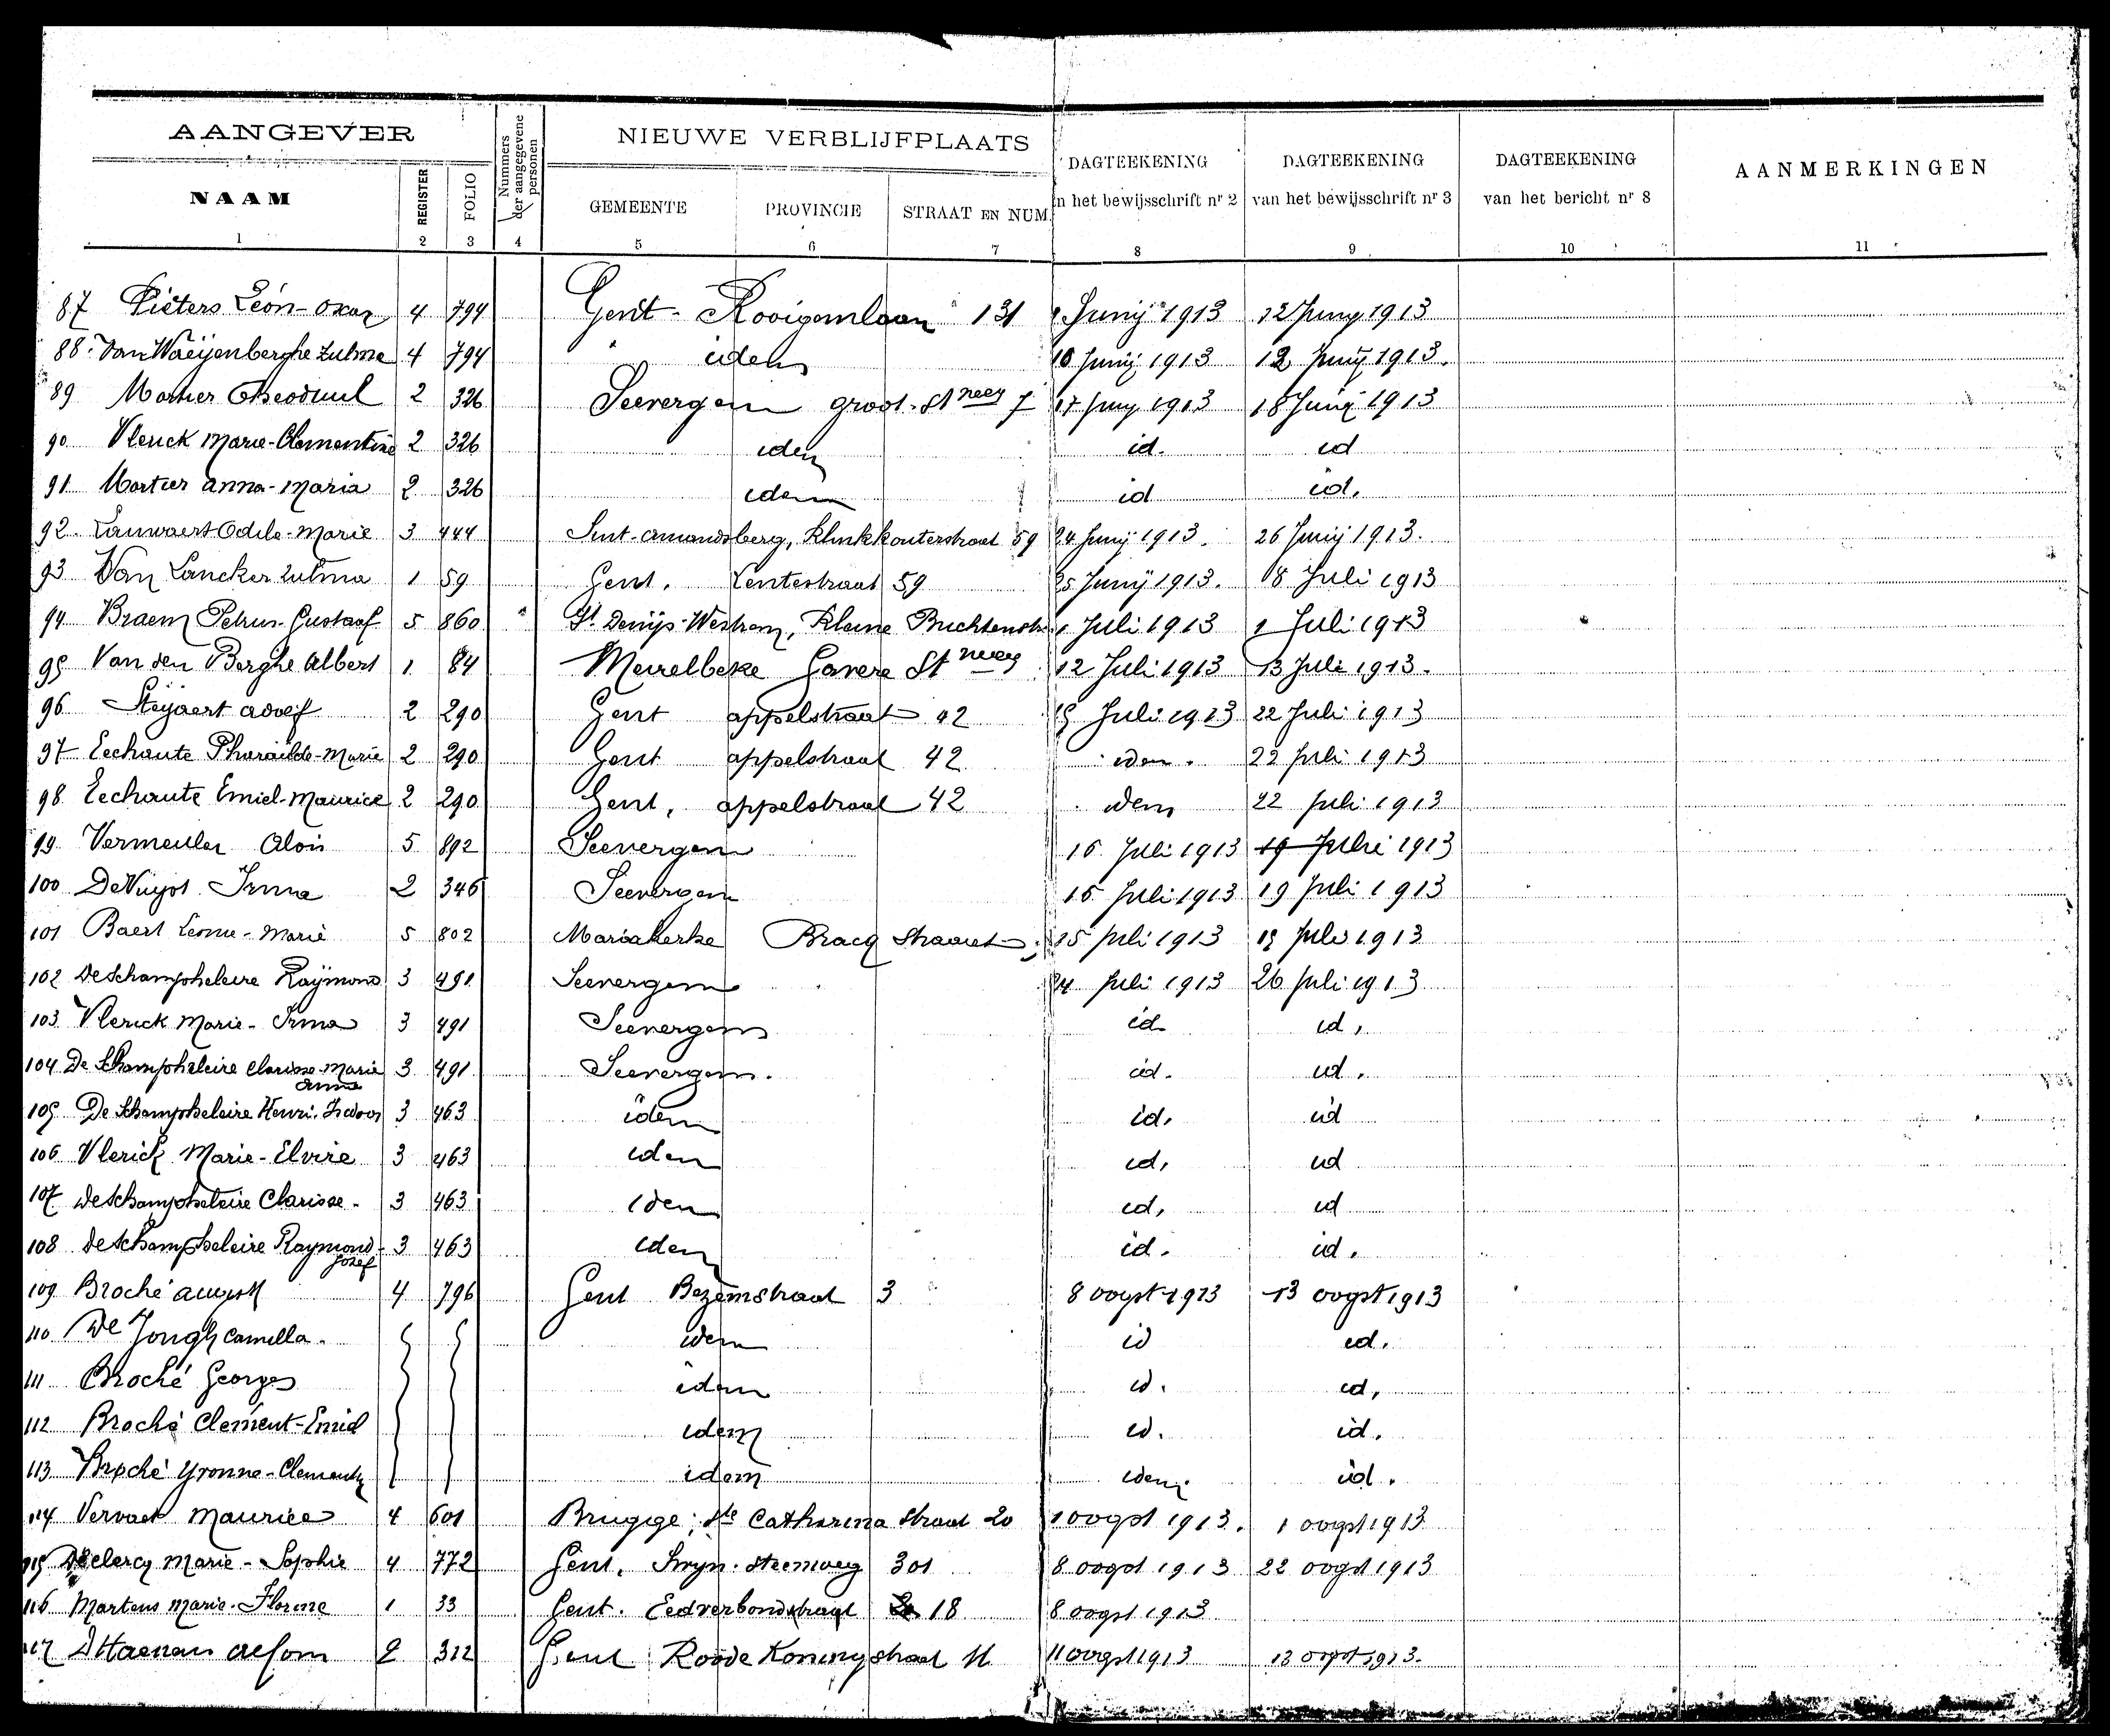 AANGEVER
Nummers der aangegevene personen
NIEUWE VERBLIJFPLAATS
NAAM REGISTER FOLIO GEMEENTE PROVINCIE STRAAT EN NUM.
DAGTEEKENING n het bewijsschrift nr 2
DAGTEEKENING van het bewijsschrift nr 3
DAGTEEKENING van het bericht nr 8
AANMERKINGEN
1 2 3 4 5 6 7 8 9 10 11
87 Pieters Léon-Oscar 4 794 Gent - Rooigemlaan 131 Junij 1913 12 Juny 1913
88. Van Waeijenberghe Zulma 4 794 idem 10 Junij 1913 12 Junij 1913.
89 Mortier Theoduul 2 326 Seevergem groot-Stneeg 7 17 Juny 1913 18 Junij 1913
90 Vlerick Marie-Clementine 2 326 idem id. id
91 Mortier Anna-Maria 2 326 idem id id.
92. Lauwaert Odile-Marie 3 444 Sint-Amandsberg, Klinkkouterstraat 59 24 Junij 1913. 26 Junij 1913.
93 Van Lancker Zulma 1 59 Gent. Lentestraat 59 25 Junij 1913. 8 Juli 1913
94 Braem Petrus-Gustaaf 5 860 St. Denijs-Westrem, Kleine Buchtenstr. 1 Juli 1913 1 Juli 1913
95 Van den Berghe Albert 1 84 Meirelbeke Gavere St 12 Juli 1913 13 Juli 1913.
96 Steijaert Adolf 2 290 Gent appelstraat 42 Juli 1913 22 Juli 1913
97 Eechaute Pharaïlde-Marie 2 290 Gent appelstraat 42 idem. 22 Juli 1913
98 Eechaute Emiel-Maurice 2 290 Gent, appelstraat 42 idem 22 Juli 1913
99 Vermeulen Alois 5 892 Seevergem 16 Juli 1913 19 Julie 1913
100 De Vuyst Irma 2 346 Seevergem 16 Juli 1913 19 Juli 1913
101 Baert Leonie-Marie 5 802 Mariakerke Bracq Straat 15 Juli 1913 Juli 1913
102 De Schampheleire Raÿmond 3 491 Seevergem 24 Juli 1913 26 Juli 1913
103 Vlerick Marie-Irma 3 491 Seevergem id. id.
104 De Schampheleire Clarisse-Marie Anna 3 491 Seevergem. id. id.
105 De Schampheleire Henri-Isidoor 3 463 idem id. id
106 Vlerick Marie-Elvire 3 463 idem id. id
107 De Schampheleire Clarisse - 3 463 idem id, id
108 De Schampheleire Raymond-Jozef 3 463 idem id. id.
109 Broché August 4 796 Gent Bezemstraat 3 8 oogst 1913 13 oogst 1913
110 De Jongh Camilla. idem id id.
111 Broché Georges idem id. id,
112 Broché Clement-Emiel idem id. id.
113 Broché Yvonne-Clementy idem idem. id.
114 Vervaet Maurice 4 601 Brugge; Ste Catharina Straat 20 1 oogst 1913. 1 oogst 1913
115 De Clercq Marie-Sophie 4 772 Gent. steenweg 301 8 oogst 1913 22 oogst 1913
116 Martens Marie-Florine 1 33 Gent. Eedverbondstraat 18 8 oogst 1913
117 D'Haenen Alfons 2 312 Gent Roode Koningstraat 11 11 oogst 1913 13 oogst 1913.